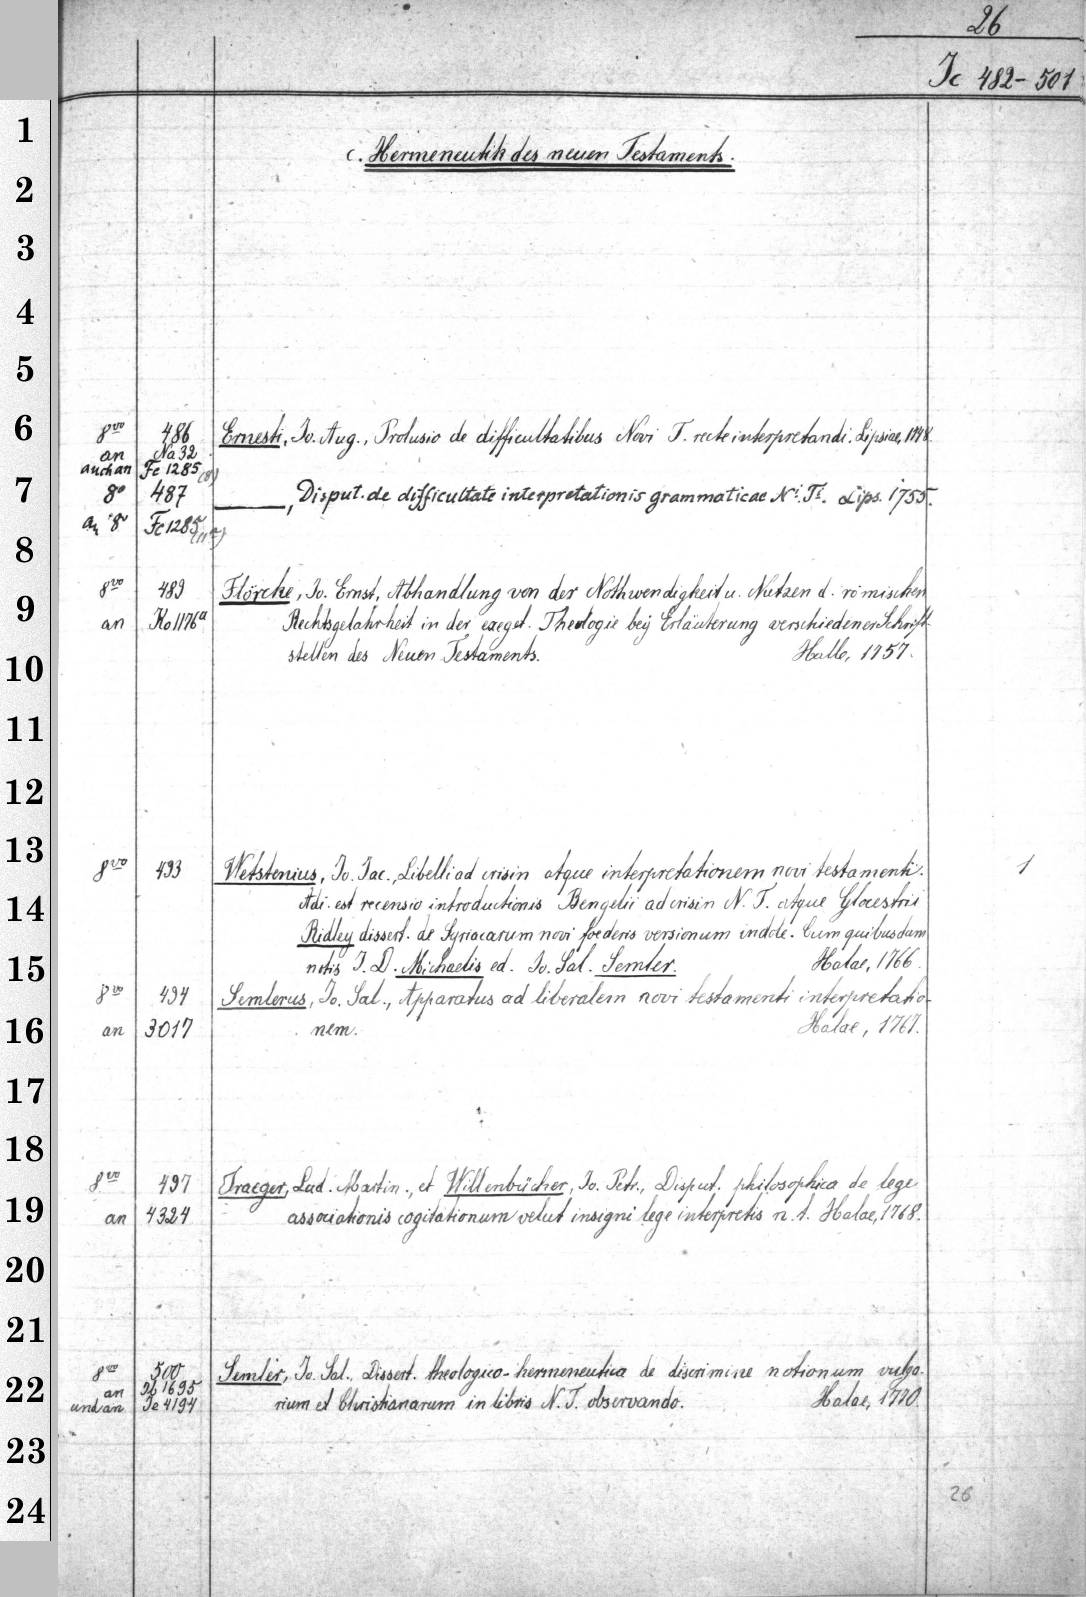 26
Ic 482-501
c. Hermeneutik des neuen Testaments.
8vo 486 Ernesti, Jo. Aug., Prolusio de difficultatibus Novi T. recte interpretandi. Lipsiae, 1748.
an Na 32
auch an Fc 1285 (8)
8o 487 ———, Disput. de difficultate interpretationis grammaticae Ni. Ti. Lips. 1755.
an 8o Fc 1285
8vo 489 Flörcke, Jo. Ernst, Abhandlung von der Nothwendigkeit u. Nutzen d. römischen
an Ko 1176a Rechtsgelahrheit in der exeget. Theologie beÿ Erläuterung verschiedener Schrift-
stellen des Neuen Testaments. Halle, 1757.
8vo 493 Wetstenius, Jo. Jac., Libelli ad crisin atque interpretationem novi testamenti. 1
Adi. est recensio introductionis Bengelii ad crisin N. T. atque Glocestrii
Ridley dissert. de Syriacarum novi foederis versionum indole. Cum quibusdam
notis J. D. Michaelis ed. Jo. Sal. Semler. Halae, 1766.
8vo 494 Semlerus, Jo. Sal., Apparatus ad liberalem novi testamenti interpretatio-
an 3017 nem. Halae, 1767.
8vo 497 Traeger, Lud. Martin., et Willenbücher, Jo. Petr., Disput. philosophica de lege
an 4324 associationis cogitationum velut insigni lege interpretis n. t. Halae, 1768.
8vo 500 Semler, Jo. Sal., Dissert. theologico-hermeneutica de discrimine notionum vulga-
an Ib 1695 rium et Christianarum in libris N. T. observando. Halae, 1770.
und an Ie 4194
26
1
2
3
4
5
6
7
8
9
10
11
12
13
14
15
16
17
18
19
20
21
22
23
24